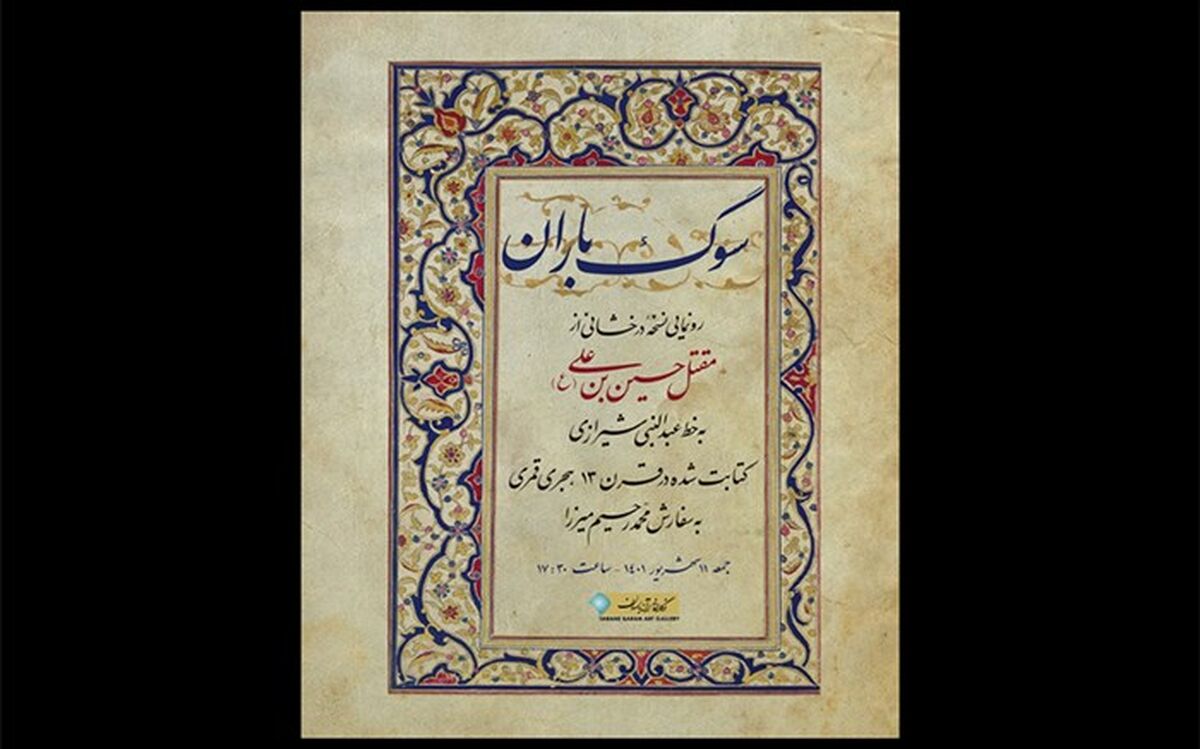 سوگ باران
رونمایی نسخهٔ درخشانی از
مقتل حسین بن علی (ع)
به خط عبدالنبی شیرازی
کتابت شده در قرن ۱۳ هجری قمری
به سفارش محمدرحیم میرزا
جمعه ۱۱ شهریور ۱۴۰۱ - ساعت ۱۷:۳۰
ART GALLERY